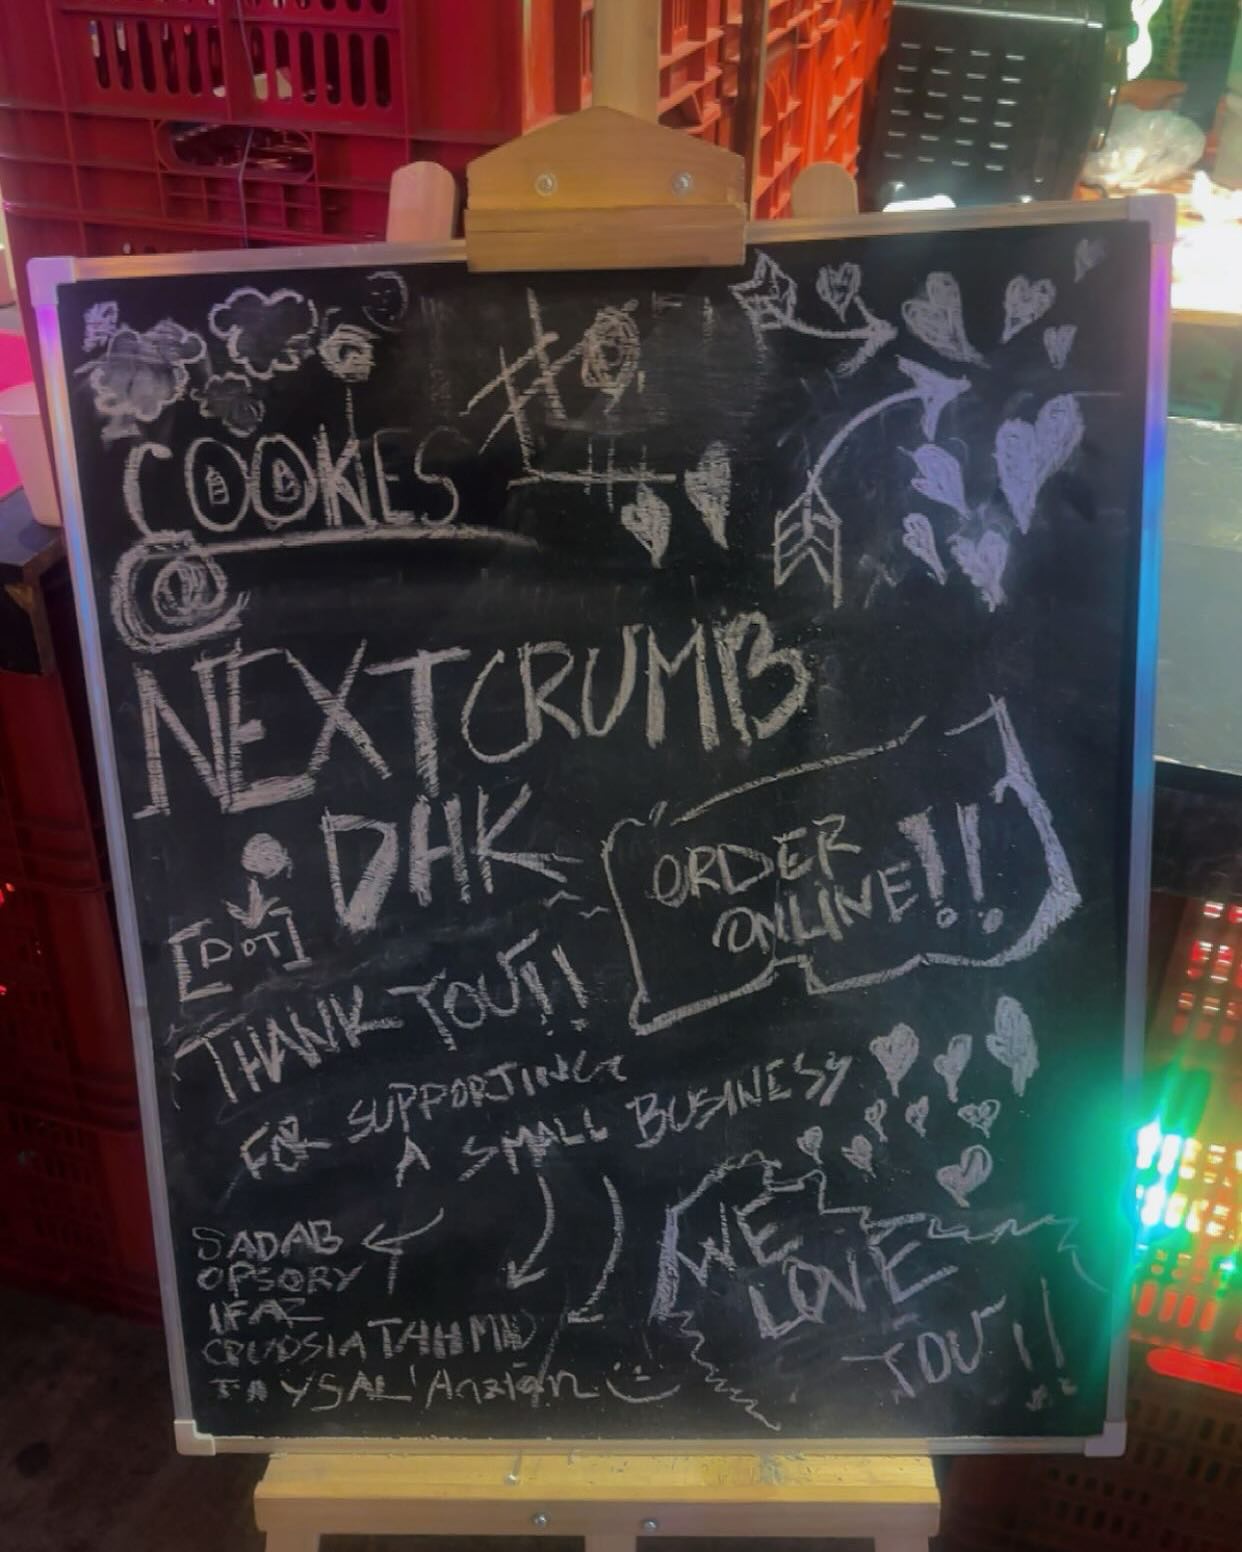 COOKIES
@
NEXTCRUMB
.DHK
[DOT]
ORDER
ONLINE!!
THANK YOU!!
FOR SUPPORTING
A SMALL BUSINESS
SADAB
OPSORY
IFAZ
TAHMID
WE
LOVE
YOU!!